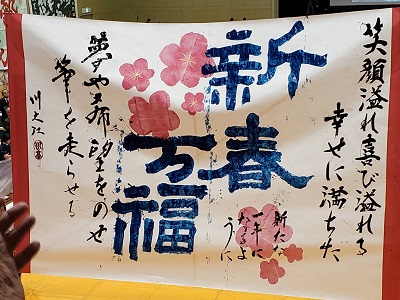 笑顔溢れ喜び溢れる
幸せに満ちた
新春
万福
新たな
一年に
なるよ
うに
夢や希望をのせ
筆を走らせる
川之江